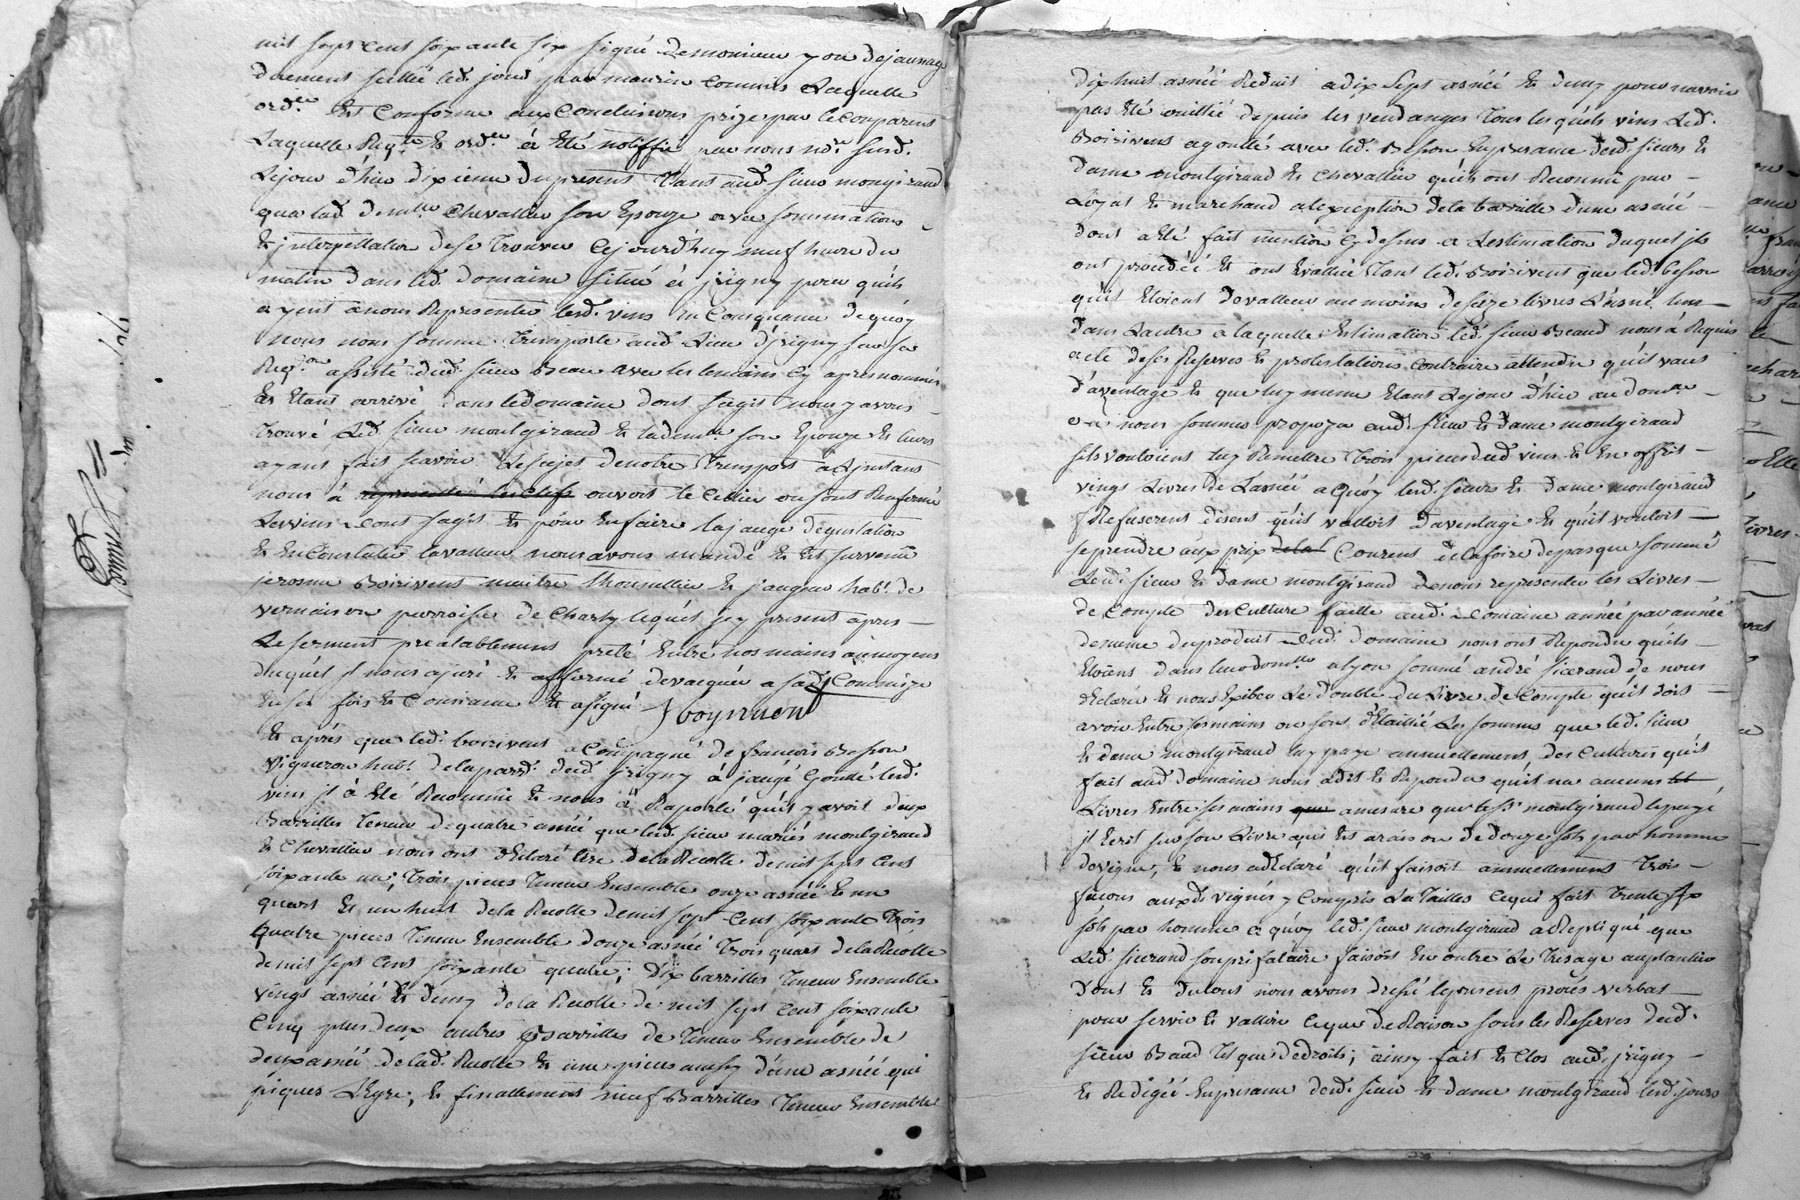 mil sept cent soixante six signé demonieux yon dejaunage
duement scellé led. jour par maurin commis Laquelle
ord.ce Est Conforme aux Conclusions prize par le Comparent
Laquelle Req.te & ord.ce à Eté notiffié par nous no.re susd.
Le jour d'hier dixieme du present Tant aud. sieur montgirand
qua lad. dem.lle Chevallier son Epouze avec sommations
& jnterpellation de se Trouver Cejourd'huy neuf heure du
matin dans led. domaine situé à jrigny pour quils
ayent à nous Representer lesd. vins En Consequence de quoy
nous nous somme Transporté aud. Lieu d'jrigny sur sa
Req.on assisté dud. sieur Beau avec les temoins Cy apres nommés
Et Etant arrivé dans le domaine dont sagit nous y avons
Trouvé Led. sieur montgirand & lad. dem.lle son Epouze Et leurs
ayant fait scavoir Le sujet de notre Transport à Linstant
nous à representé les Clefs ouvert le Cellier ou sont Renfermé
Les vins dont sagit & pour En faire la jauge degustation
& En Constater la valleur nous avons mandé & Est survenu
jerosme Boirivent maitre Thonnellier & jaugeur hab.t de
vernaison parroisse de Charly lequel jcy present apres
Le serment prealablement preté Entre nos mains au moyens
duquel jl nous a juré & affirmé de vacquer a sad. Commize
En sa fois & Consiance & a signé J boyriuent
Et après que led. boirivent accompagné de francois Besson
vigneron hab.t de la par.se dud. jrigny à jaugé Goutté lesd.
vins jl à Eté Reconnu & nous à Raporté quil y avoit deux
Barrilles Teneur de quatre année que lesd. sieur mariés montgirand
& Chevallier nous ont déclaré Etre de la Recolte de mil sept cent
soixante un; Trois pieces Teneur Ensemble onze asnée & un
quart Et un huit de la Recolte de mil sept Cent soixante Trois
Quatre pieces Teneur Ensemble douze asnée Trois quart de la Recolte
de mil sept Cent soixante quatre; Dix barrilles Teneur Ensemble
vingt asnée & demy de la Recolte de mil sept Cent soixante
Cinq plus deux autres Barrilles de Teneur Ensemble de
deux asnée de lad. Recolte & une piece aussy d'une asnée qui
piques L'egre; & finallement neuf Barrilles Teneur Ensemble
dix huit asnée Reduit a dix Sept asnée & demy pour navoir
pas Eté ouillié depuis les vendanges Tous lesquels vins Led.
Boirivent a goutté avec led. Besson En presence desd. sieurs &
Dame montgirand & Chevallier quils ont Reconnu pur
Loyal & marchand a lexception de la barrille dune asnée
dont a Eté fait mention Cy dessus a Lestimation duquel jls
ont procédé & ont Evallué Tant led. Boirivent que led. besson
quil Etoient de valleur au moins de seize livres L'asné lun
dans Lautre a laquelle Estimation led. sieur Beaud nous à Requis
acte de ses Reserves & protestations Contraire attendu quil vaut
d'aventage & que luy meme Etant Le jour d'hier au dom.ne
ou nous sommes propoza aud. sieur & dame montgirand
sils vouloient luy Remettre Trois pieces dud. vins & En offrit
vingt Livres de L'année a Quoy lesd. sieurs & dame montgirand
Refuserent disent quil valloit Daventage & quil vouloit
se prendre aux prix de la Courent de la foire de pasque sommé
Lesd. sieur & dame montgirand de nous representer les Livres
de Compte des Culture faitte aud. Domaine année par année
de meme du produit dud. domaine nous ont Repondu quils
Etoient dans leur dom.lle a lyon sommé andré sicerand de nous
declaré & nous Exiber Le double du Livre de Compte quil doit
avoir Entre ses mains ou sont d'Etaillié Les sommes que led. sieur
& dame montgirand luy paye annuellement des Cultures quil
fait aud. domaine nous a dit & Repondu quil na aucuns tel
Livres Entre ses mains que amesure que le s.r montgirand le paye
jl Ecrit sur son Livre a qui Est a raison de douze sols par homme
de vigne, & nous a declaré quil faisoit annuellement Trois
facons aux d. vignes y Compris La Tailles Ce qui fait Trente six
sols par homme a quoy led. sieur montgirand a Repliqué que
Led. sicerand son prifataire faisoit En outre Le Tirage au plantier
Dont & du tout nous avons dressé le present procès verbal
pour servir & valloir Ce que de Raison sous les Reserves dud.
sieur Baud Tel que de droits; ainsy fait & Clos aud. jrigny
& Redigéé En presence desd. sieur & dame montgirand lesd. jours